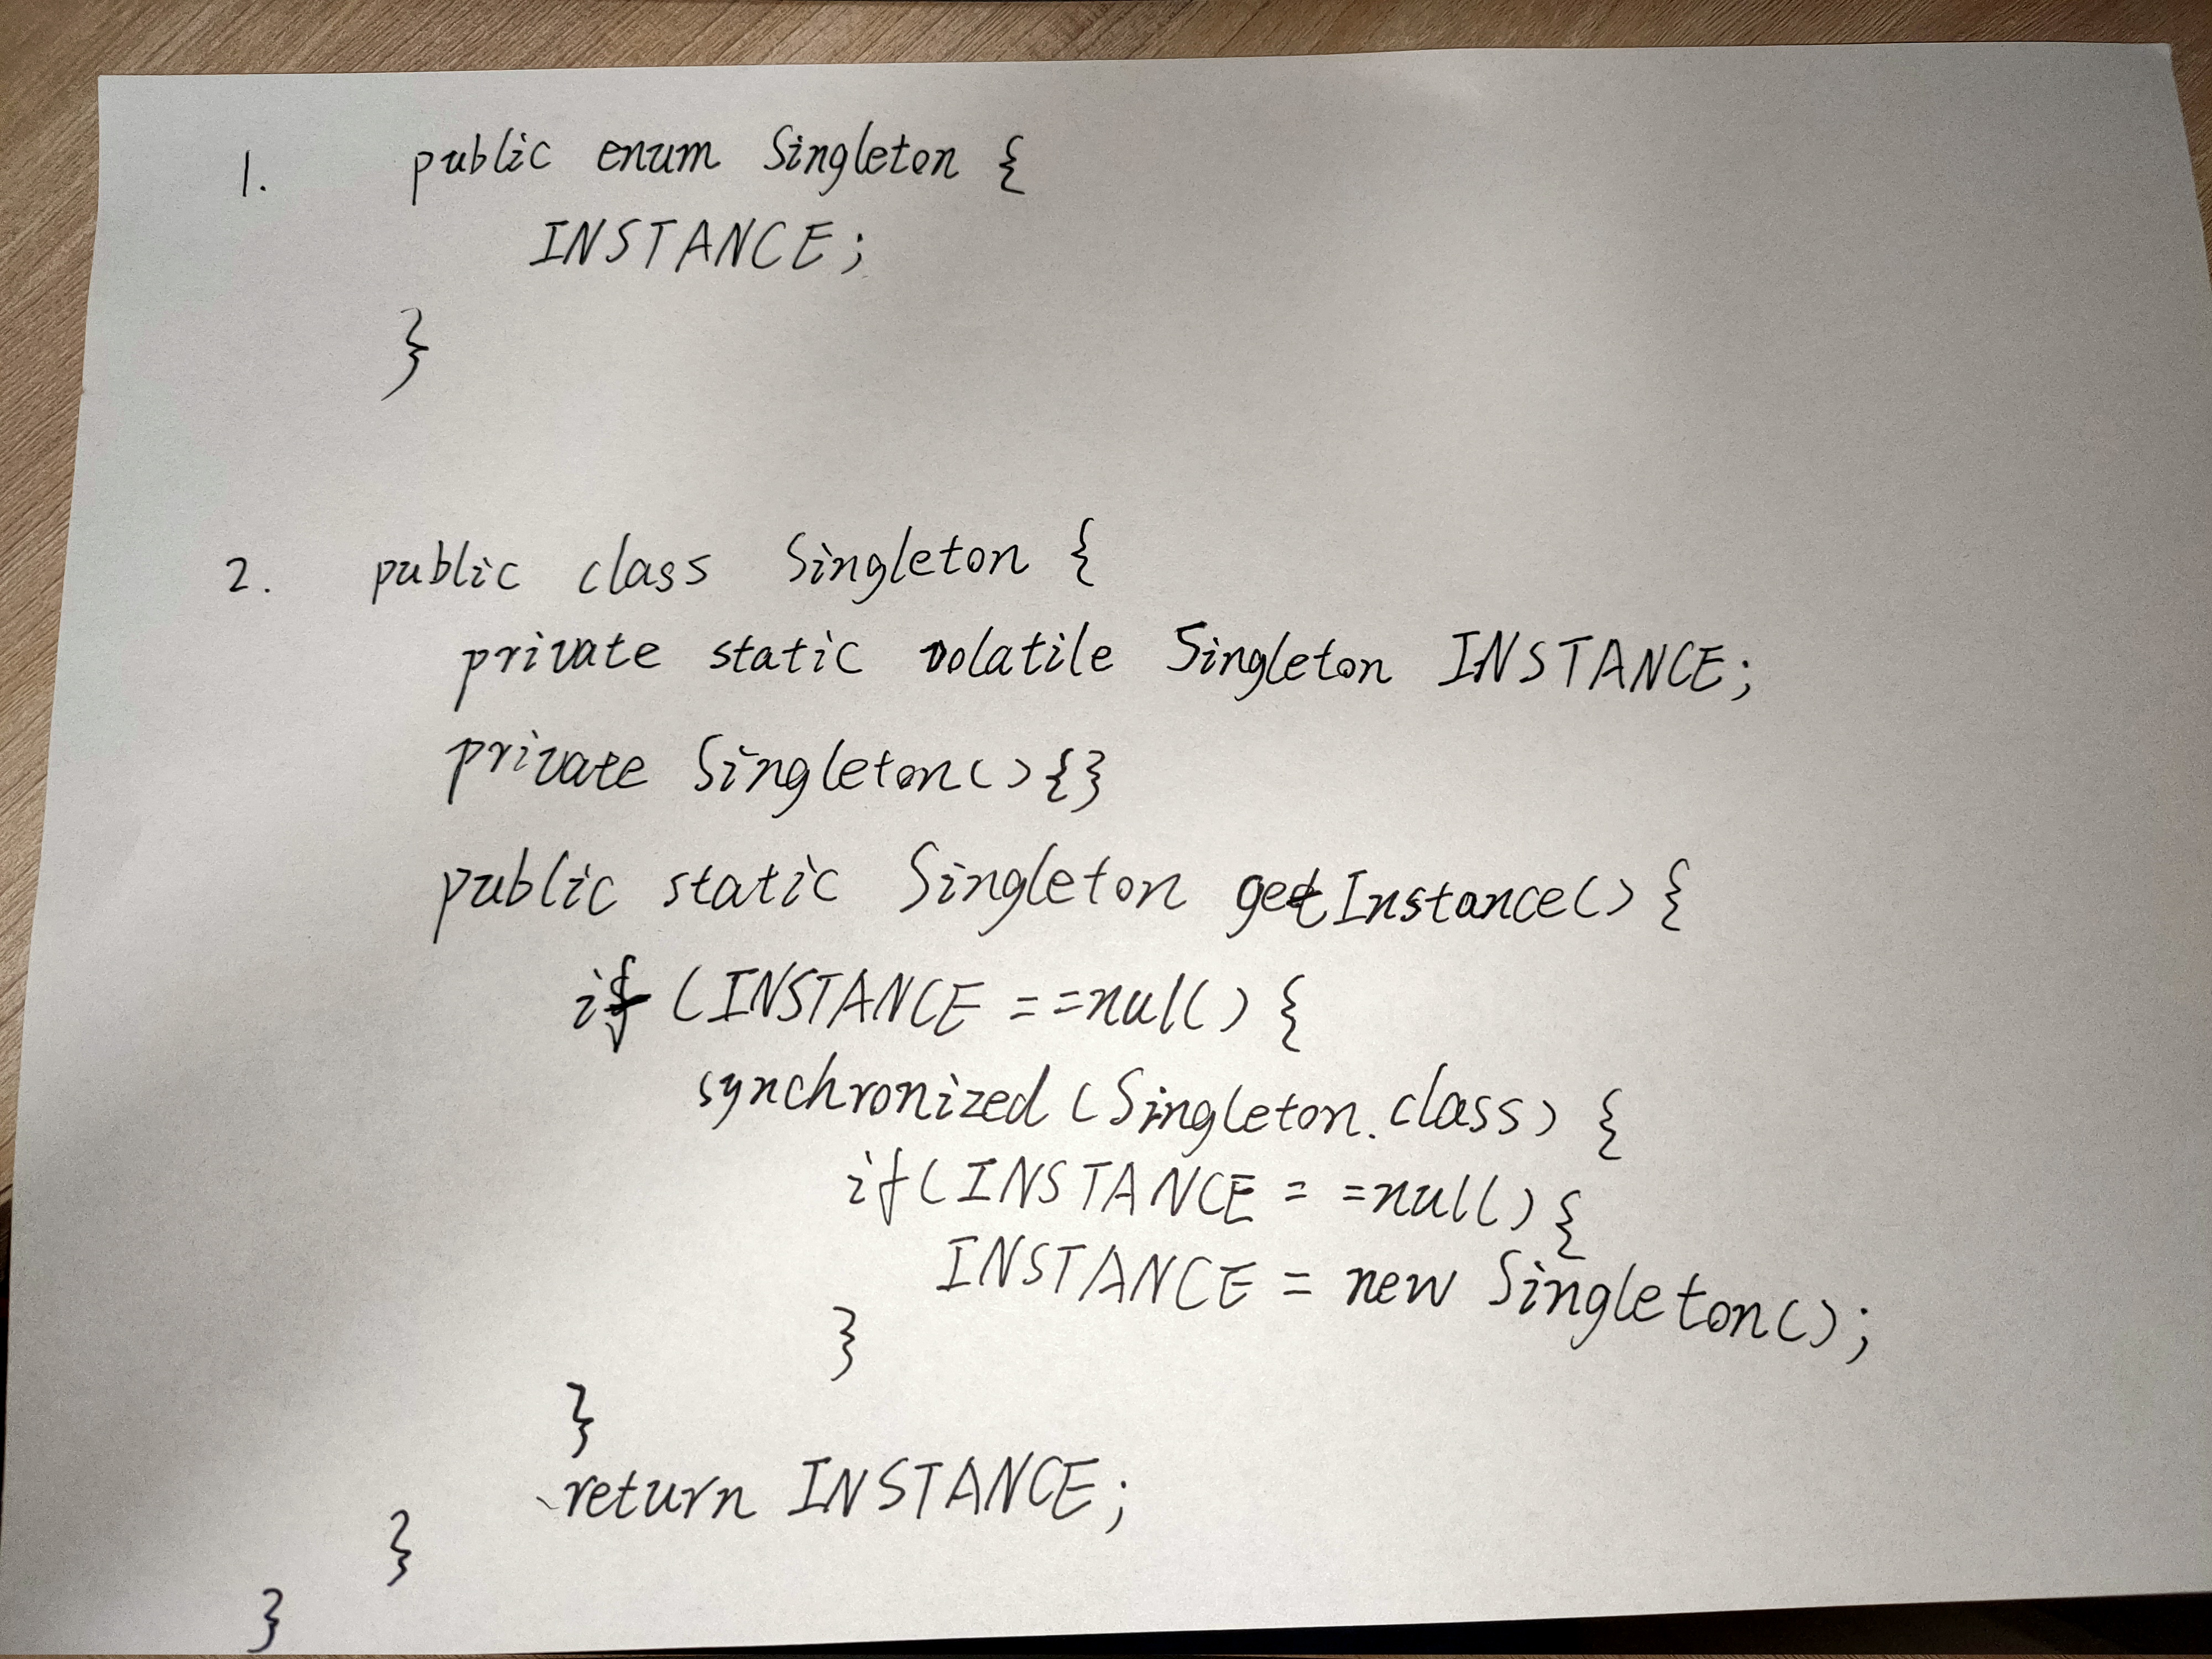 1. public enum Singleton {
INSTANCE;
}
2. public class Singleton {
private static volatile Singleton INSTANCE;
private Singleton(){}
public static Singleton getInstance() {
if (INSTANCE ==null) {
synchronized (Singleton.class) {
if(INSTANCE ==null){
INSTANCE = new Singleton();
}
}
return INSTANCE;
}
}